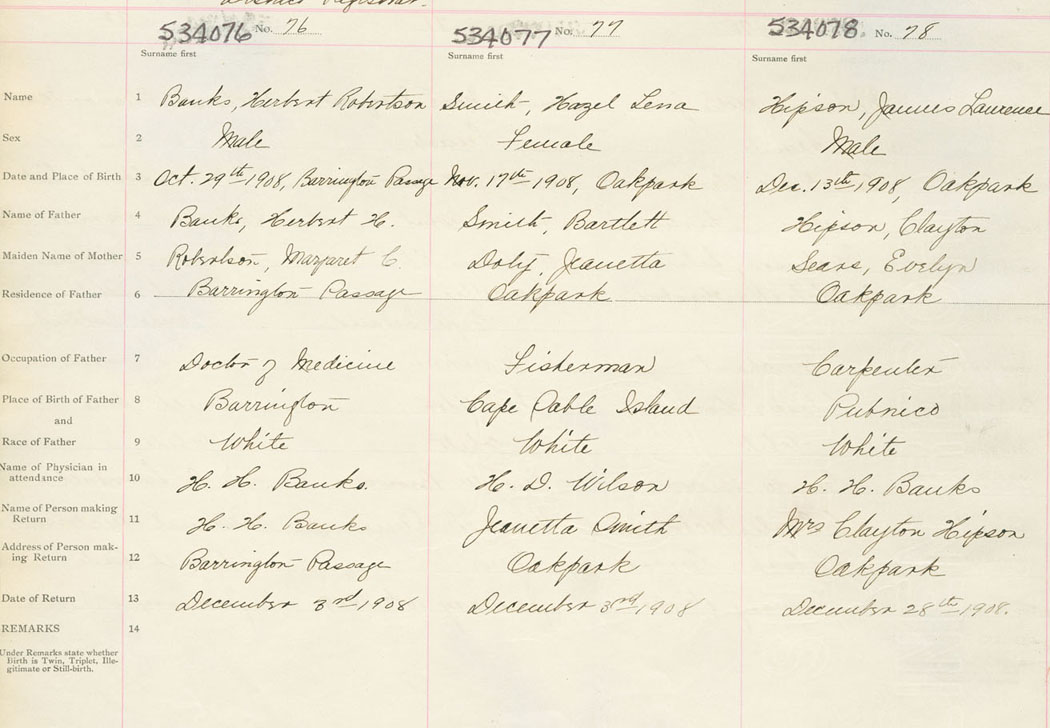 District Registrar.
534076 No. 76 534077 No. 77 534078 No. 78
Surname first Surname first Surname first
Name 1 Banks, Herbert Robertson Smith, Hazel Lena Hipson, James Laurence
Sex 2 Male Female Male
Date and Place of Birth 3 Oct. 29th 1908, Barrington Passage Nov. 17th 1908, Oakpark Dec. 13th 1908, Oakpark
Name of Father 4 Banks, Herbert H. Smith, Bartlett Hipson, Clayton
Maiden Name of Mother 5 Robertson, Margaret C. Doly, Jeanetta Sears, Evelyn
Residence of Father 6 Barrington Passage Oakpark Oakpark
Occupation of Father 7 Doctor of Medicine Fisherman Carpenter
Place of Birth of Father 8 Barrington Cape Sable Island Pubnico
and
Race of Father 9 White White White
Name of Physician in
attendance 10 H. H. Banks. H. D. Wilson H. H. Banks
Name of Person making
Return 11 H. H. Banks Jeanetta Smith Mrs Clayton Hipson
Address of Person mak-
ing Return 12 Barrington Passage Oakpark Oakpark
Date of Return 13 December 3rd 1908 December 3rd 1908 December 28th 1908.
REMARKS 14
Under Remarks state whether
Birth is Twin, Triplet, Ille-
gitimate or Still-birth.